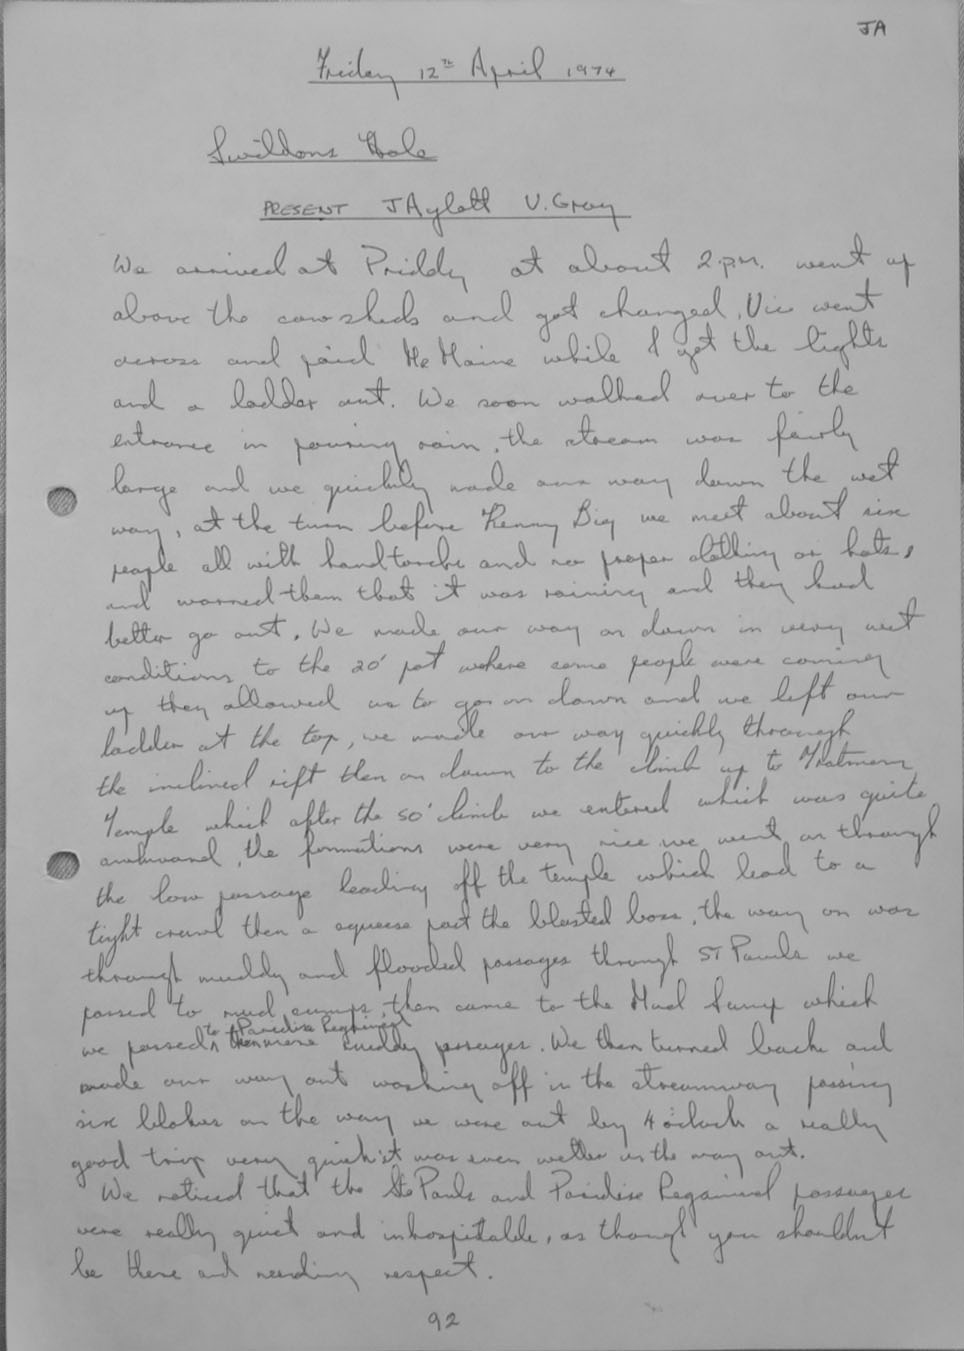 JA
Friday 12th April 1974
Swildons Hole
PRESENT JAylett V. Gray
We arrived at Priddy at about 2.p.m. went up
above the cowsheds and got changed, Vic went
across and paid Mr Maine while I got the lights
and a ladder out. We soon walked over to the
entrance in pouring rain, the stream was fairly
large and we quickly made our way down the wet
way, at the turn before Kenny Big we meet about six
people all with handtorchs and no proper clothing or hats,
and warned them that it was raining and they had
better go out. We made our way on down in very wet
conditions to the 20' pot where some people were coming
up they allowed us to go on down and we left our
ladder at the top, we made our way quickly through
the inclined rift then on down to the climb up to Tratmans
Temple which after the 50' climb we entered which was quite
awkward, the formations were very nice we went on through
the low passage leading off the temple which lead to a
tight crawl then a squeese past the blasted boss, the way on was
through muddy and flooded passages through ST Pauls we
passed to mud sumps, then came to the Mud Sump which
we passed to Paridise Regained then more muddy passages. We then turned back and
made our way out washing off in the streamway passing
six blokes on the way we were out by 4 o'clock a really
good trip very quick it was even wetter on the way out.
We noticed that the St Pauls and Paridise Regained passages
were really quiet and inhospitable, as though you shouldn't
be there and needing respect.
92